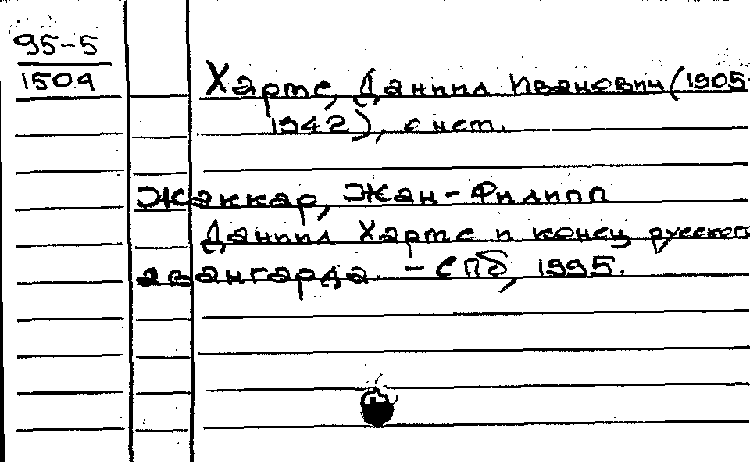 95-5
1509
Хармс, Даниил Иванович (1905-
1942), о нем.
Жаккар, Жан-Филипп
Даниил Хармс и конец русского
авангарда. - СПб, 1995.